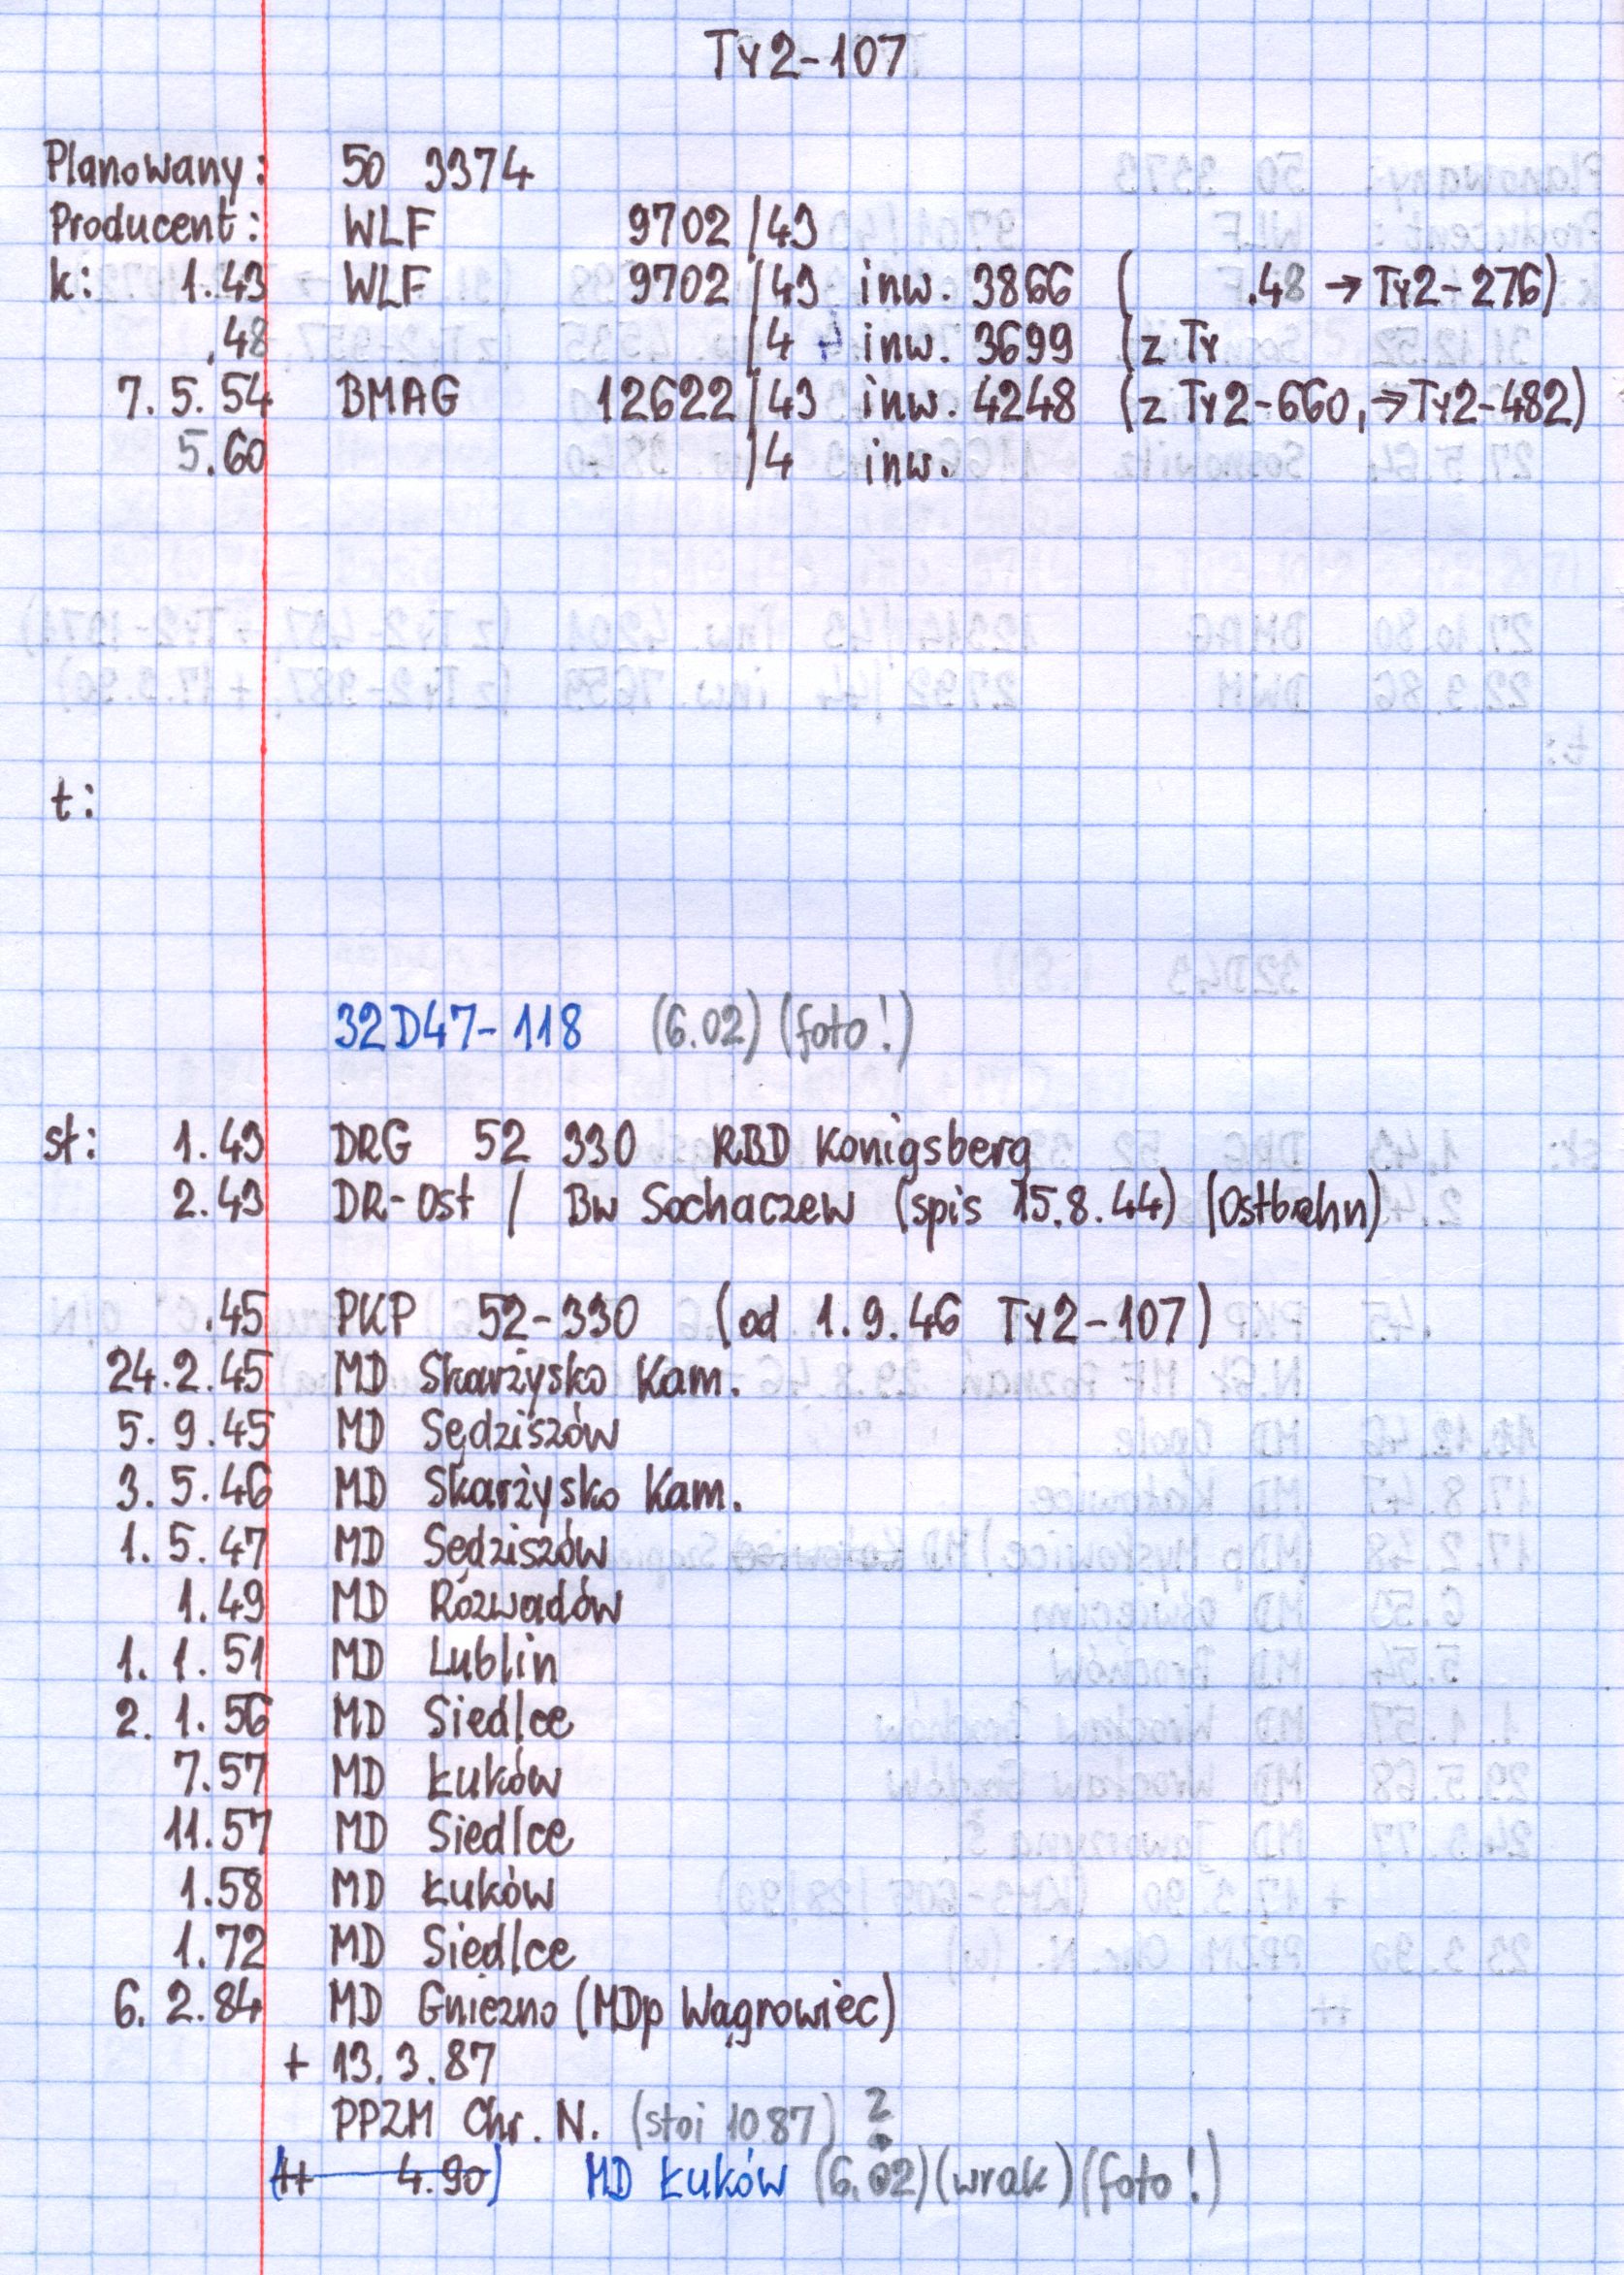 Ty2-107
Planowany: 50 3374
Producent: WLF 9702/43
k: 1.43 WLF 9702/43 inw. 3866 ( .48 → Ty2-276)
.48 /4 inw. 3699 (z Ty
7.5.54 BMAG 12622/43 inw. 4248 (z Ty2-660, → Ty2-482)
5.60 /4 inw.
t:
32D47-118 (6.02) (foto!)
st: 1.43 DRG 52 330 RBD Konigsberg
2.43 DR-Ost / Bw Sochaczew (spis 15.8.44) (Ostbahn)
.45 PKP 52-330 (od 1.9.46 Ty2-107)
24.2.45 MD Skarżysko Kam.
5.9.45 MD Sędziszów
3.5.46 MD Skarżysko Kam.
1.5.47 MD Sędziszów
1.49 MD Rozwadów
1.1.51 MD Lublin
2.1.56 MD Siedlce
7.57 MD Łuków
11.57 MD Siedlce
1.58 MD Łuków
1.72 MD Siedlce
6.2.84 MD Gniezno (MDp Wągrowiec)
+ 13.3.87
PPZM Chr. N. (stoi 1087) ?
(++ 4.90) MD Łuków (6.02) (wrak) (foto!)